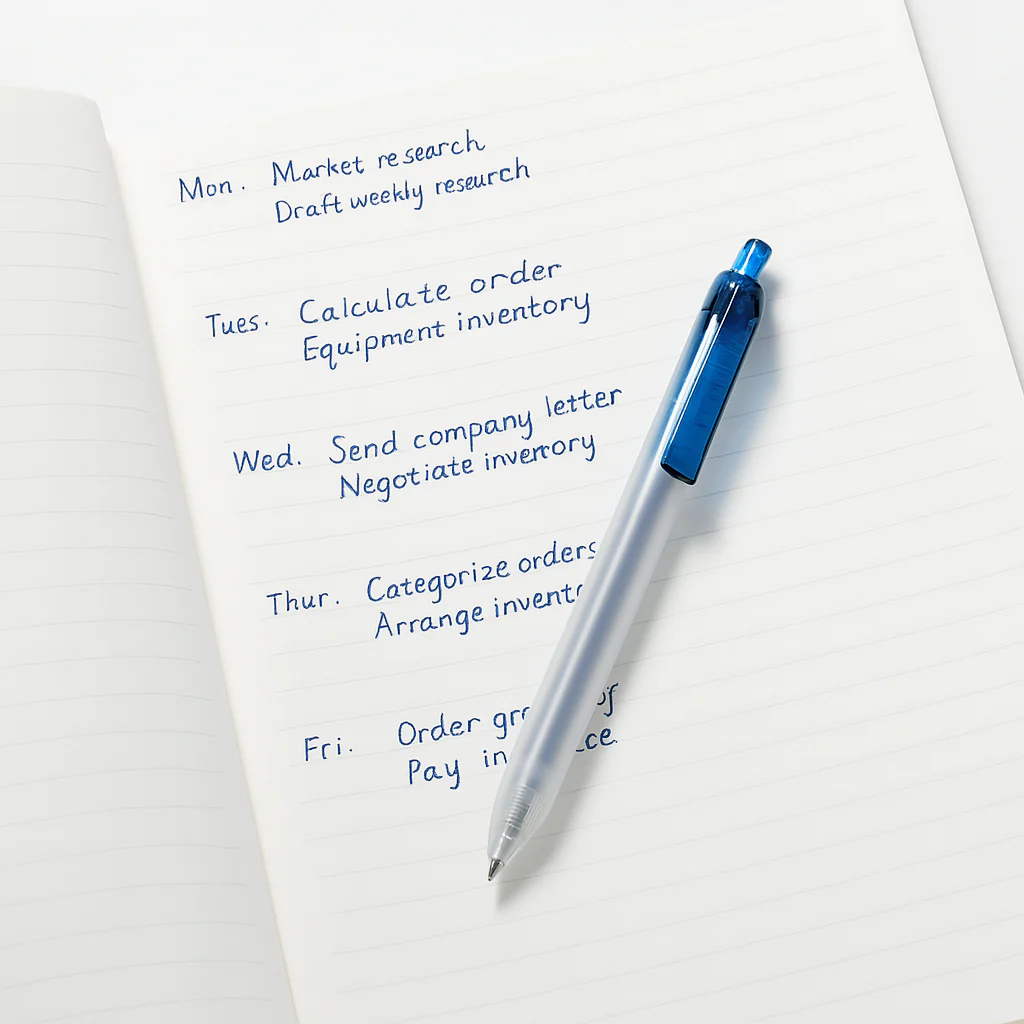 Mon. Market research
Draft weekly reseurch
Tues. Calculate order
Equipment inventory
Wed. Send company letter
Negotiate inverrory
Thur. Categorize orders
Arrange
Fri. Order
Pay